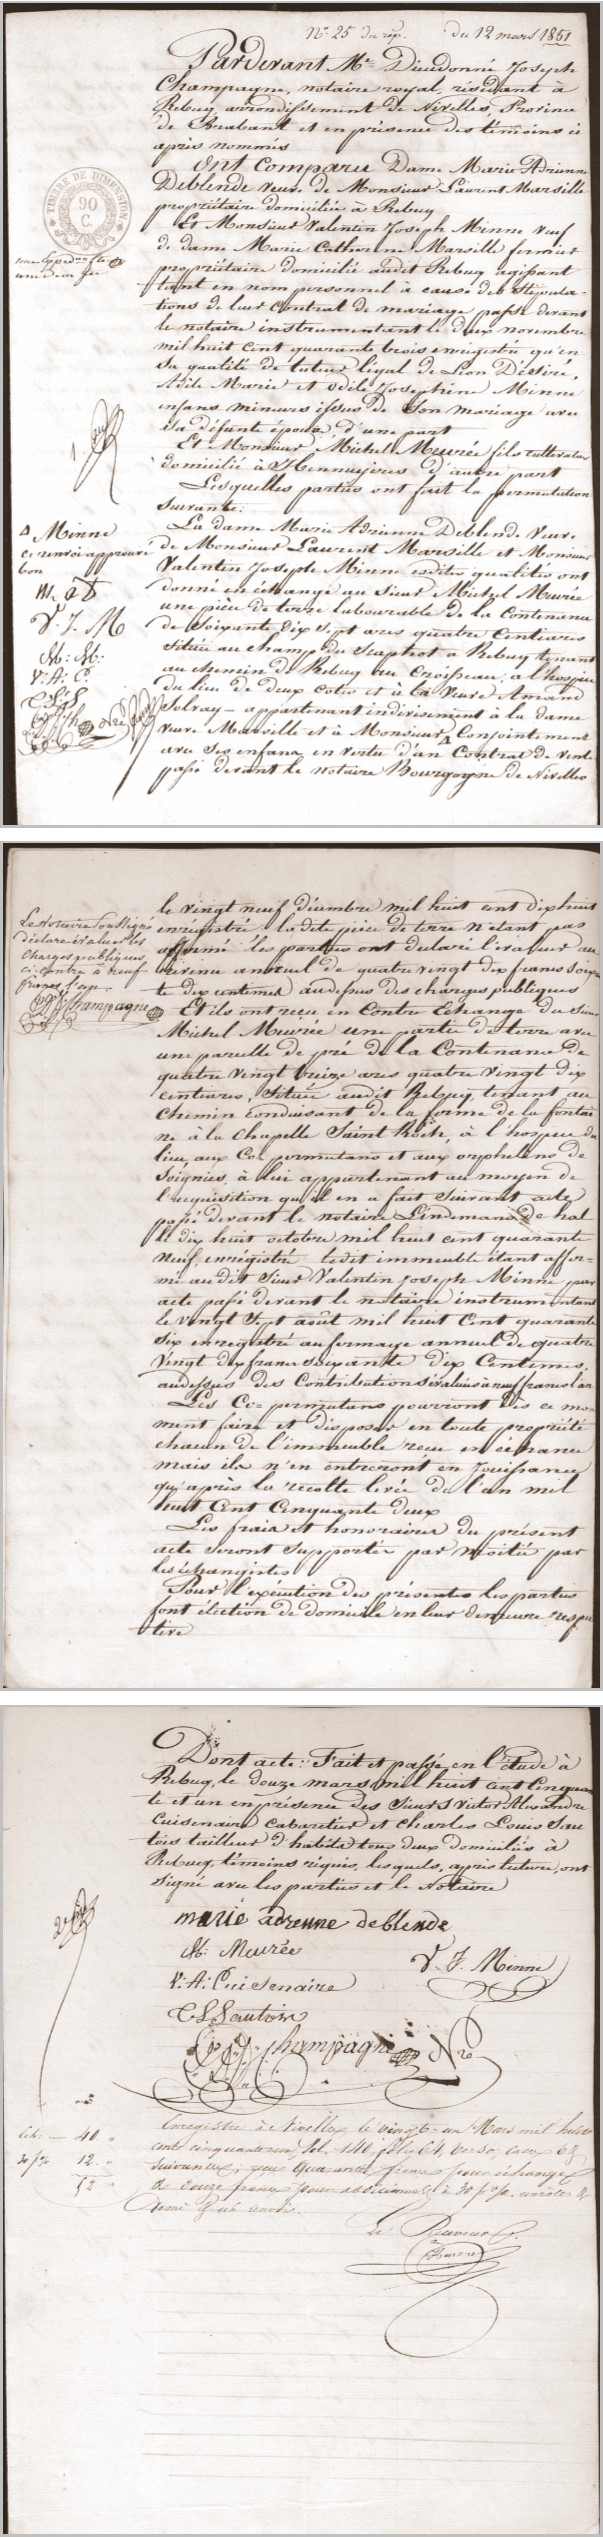 N° 25 du rép. du 12 mars 1851
Pardevant Me Dieudonné Joseph
Champagne, notaire royal, résidant à
Rebecq, arrondissement de Nivelles, Province
de Brabant et en présence des témoins ci
après nommés
Ont Comparu Dame Marie Adrienne
Deblende veuve de Monsieur Laurent Marsille
propriétaire domiciliée à Rebecq
Et Monsieur Valentin Joseph Minne veuf
de dame Marie Catherine Marsille fermier
propriétaire domicilié audit Rebecq agissant
tant en nom personnel à cause des stipula-
tions de leur contrat de mariage passé devant
le notaire instrumentant le deux novembre
mil huit cent quarante trois enregistré qu'en
sa qualité de tuteur légal de Léon Désiré,
Adèle Marie et Odile Joséphine Minne
enfans mineurs issus de son mariage avec
sa défunte épouse d'une part
Et Monsieur Michel Meurée fils cultivateur
domicilié à Hennuyères d'autre part
Lesquelles parties ont fait la permutation
suivante:
La dame Marie Adrienne Deblende veuve
de Monsieur Laurent Marsille et Monsieur
Valentin Joseph Minne esdites qualités ont
donné en échange au sieur Michel Meurée
une pièce de terre labourable de la contenance
de soixante dix sept ares quatre centiares
située au champ du à Rebecq tenant
au chemin de Rebecq au Croiseau, à l'hospice
du lieu de deux cotés et à la veuve Amand
Solvay - appartenant indivisément à la dame
veuve Marsille et à Monsieur Conjointement
avec ses enfans en vertu d'un Contrat de vente
passé devant le notaire Bourgogne de Nivelles
TIMBRE DE DIMENSION
90
C.
Minne
ce renvoi approuvé
bon
M. a D
V. J. M
M: M:
V: A: C.
C L S
le vingt neuf décembre mil huit cent dix huit
enregistré la dite pièce de terre n'étant pas
affermé les parties ont déclaré l'évaluer au
revenu annuel de quatre vingt dix francs soixan
te dix centimes audessus des charges publiques
Et ils ont reçu en contre échange du sieur
Michel Meurée une partie de terre avec
une parcelle de pré de la Contenance de
quatre vingt treize ares quatre vingt dix
centiares, située audit Rebecq, tenant au
chemin conduisant de la ferme de la fontai
ne à la chapelle Saint Roch, à l'hospice du
lieu, aux Co-permutans et aux orphelins de
Soignies, à lui appartenant au moyen de
l'acquisition qu'il en a fait suivant acte
passé devant le notaire Lindemans de hal
le dix huit octobre mil huit cent quarante
neuf, enregistré ledit immeuble étant affer-
mé au dit sieur Valentin Joseph Minne par
acte passé devant le notaire instrumentant
le vingt sept août mil huit Cent quarante
six enregistré au fermage annuel de quatre
vingt dix francs soixante dix Centimes,
audessus des Contributions évaluées à neuf francs l'an
Les Co-permutans pourront dès ce mo
ment faire et disposer en toute propriété
chacun de l'immeuble reçu en échange
mais ils n'en entreront en Jouissance
qu'après la récolte levée de l'an mil
huit Cent Cinquante deux
Les frais et honoraires du présent
acte seront supportés par moitié par
les échangistes
Pour l'exécution des présentes les parties
font élection de domicile en leur demeure respec
tive
Le Notaire Soussigné
déclare évaluer les
charges publiques
ci-contre à neuf
francs l'an.
Champagne
Dont acte: Fait et passé en l'étude à
Rebecq, le douze mars mil huit cent Cinquan
te et un en présence des Sieurs Victor Alexandre
Cuisenaire Cabaretier et Charles Louis Sau
tois tailleur d'habits tous deux domiciliés à
Rebecq, témoins requis, lesquels, après lecture, ont
signé avec les parties et le Notaire
marie adrenne deblende
M: Meurée
V. J. Minne
V: A: Cuisenaire
C L Sautois
Champagne Nre
Enregistré à Nivelles le vingt-un Mars mil huit
cent cinquante un, Vol. 140 folio 64, verso, case 6 &
suivantes; reçu quarante francs pour échange
& douze francs pour additionnels à 30 p% un rôle &
demi & un renvoi.
Le Receveur
Ech: - 40 "
30 p% 12 "
52 "